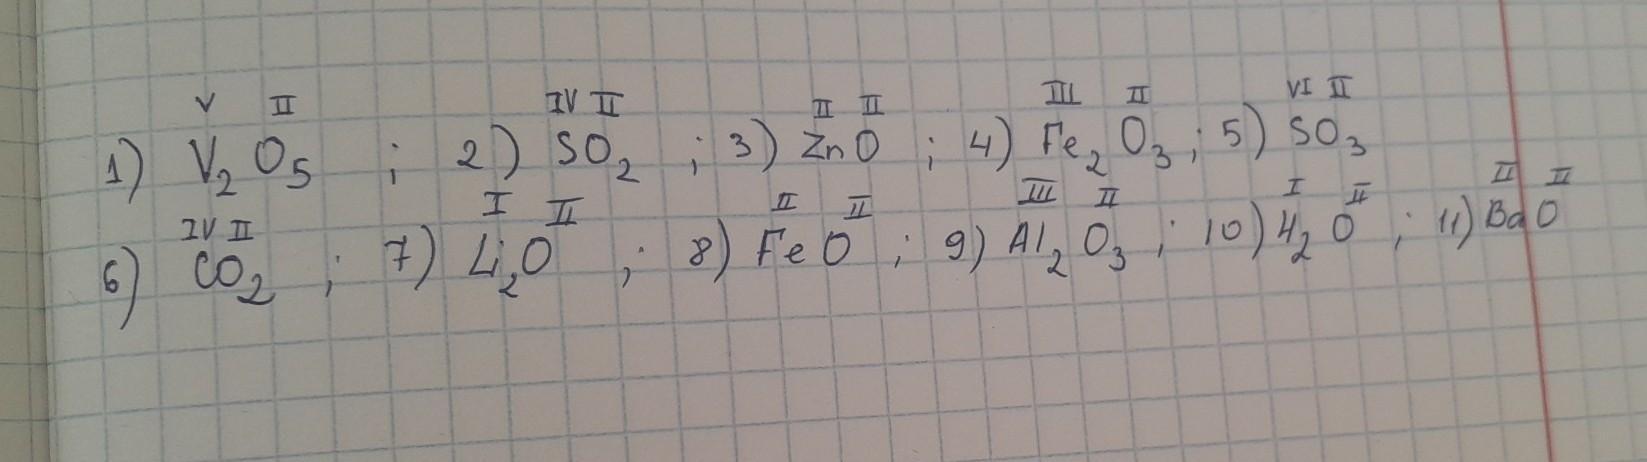 V II IV II II II III II VI II
1) V₂O₅ ; 2) SO₂ ; 3) ZnO ; 4) Fe₂O₃ ; 5) SO₃
IV II I II II II III II I II II II
6) CO₂ ; 7) Li₂O ; 8) FeO ; 9) Al₂O₃ ; 10) H₂O ; 11) BaO